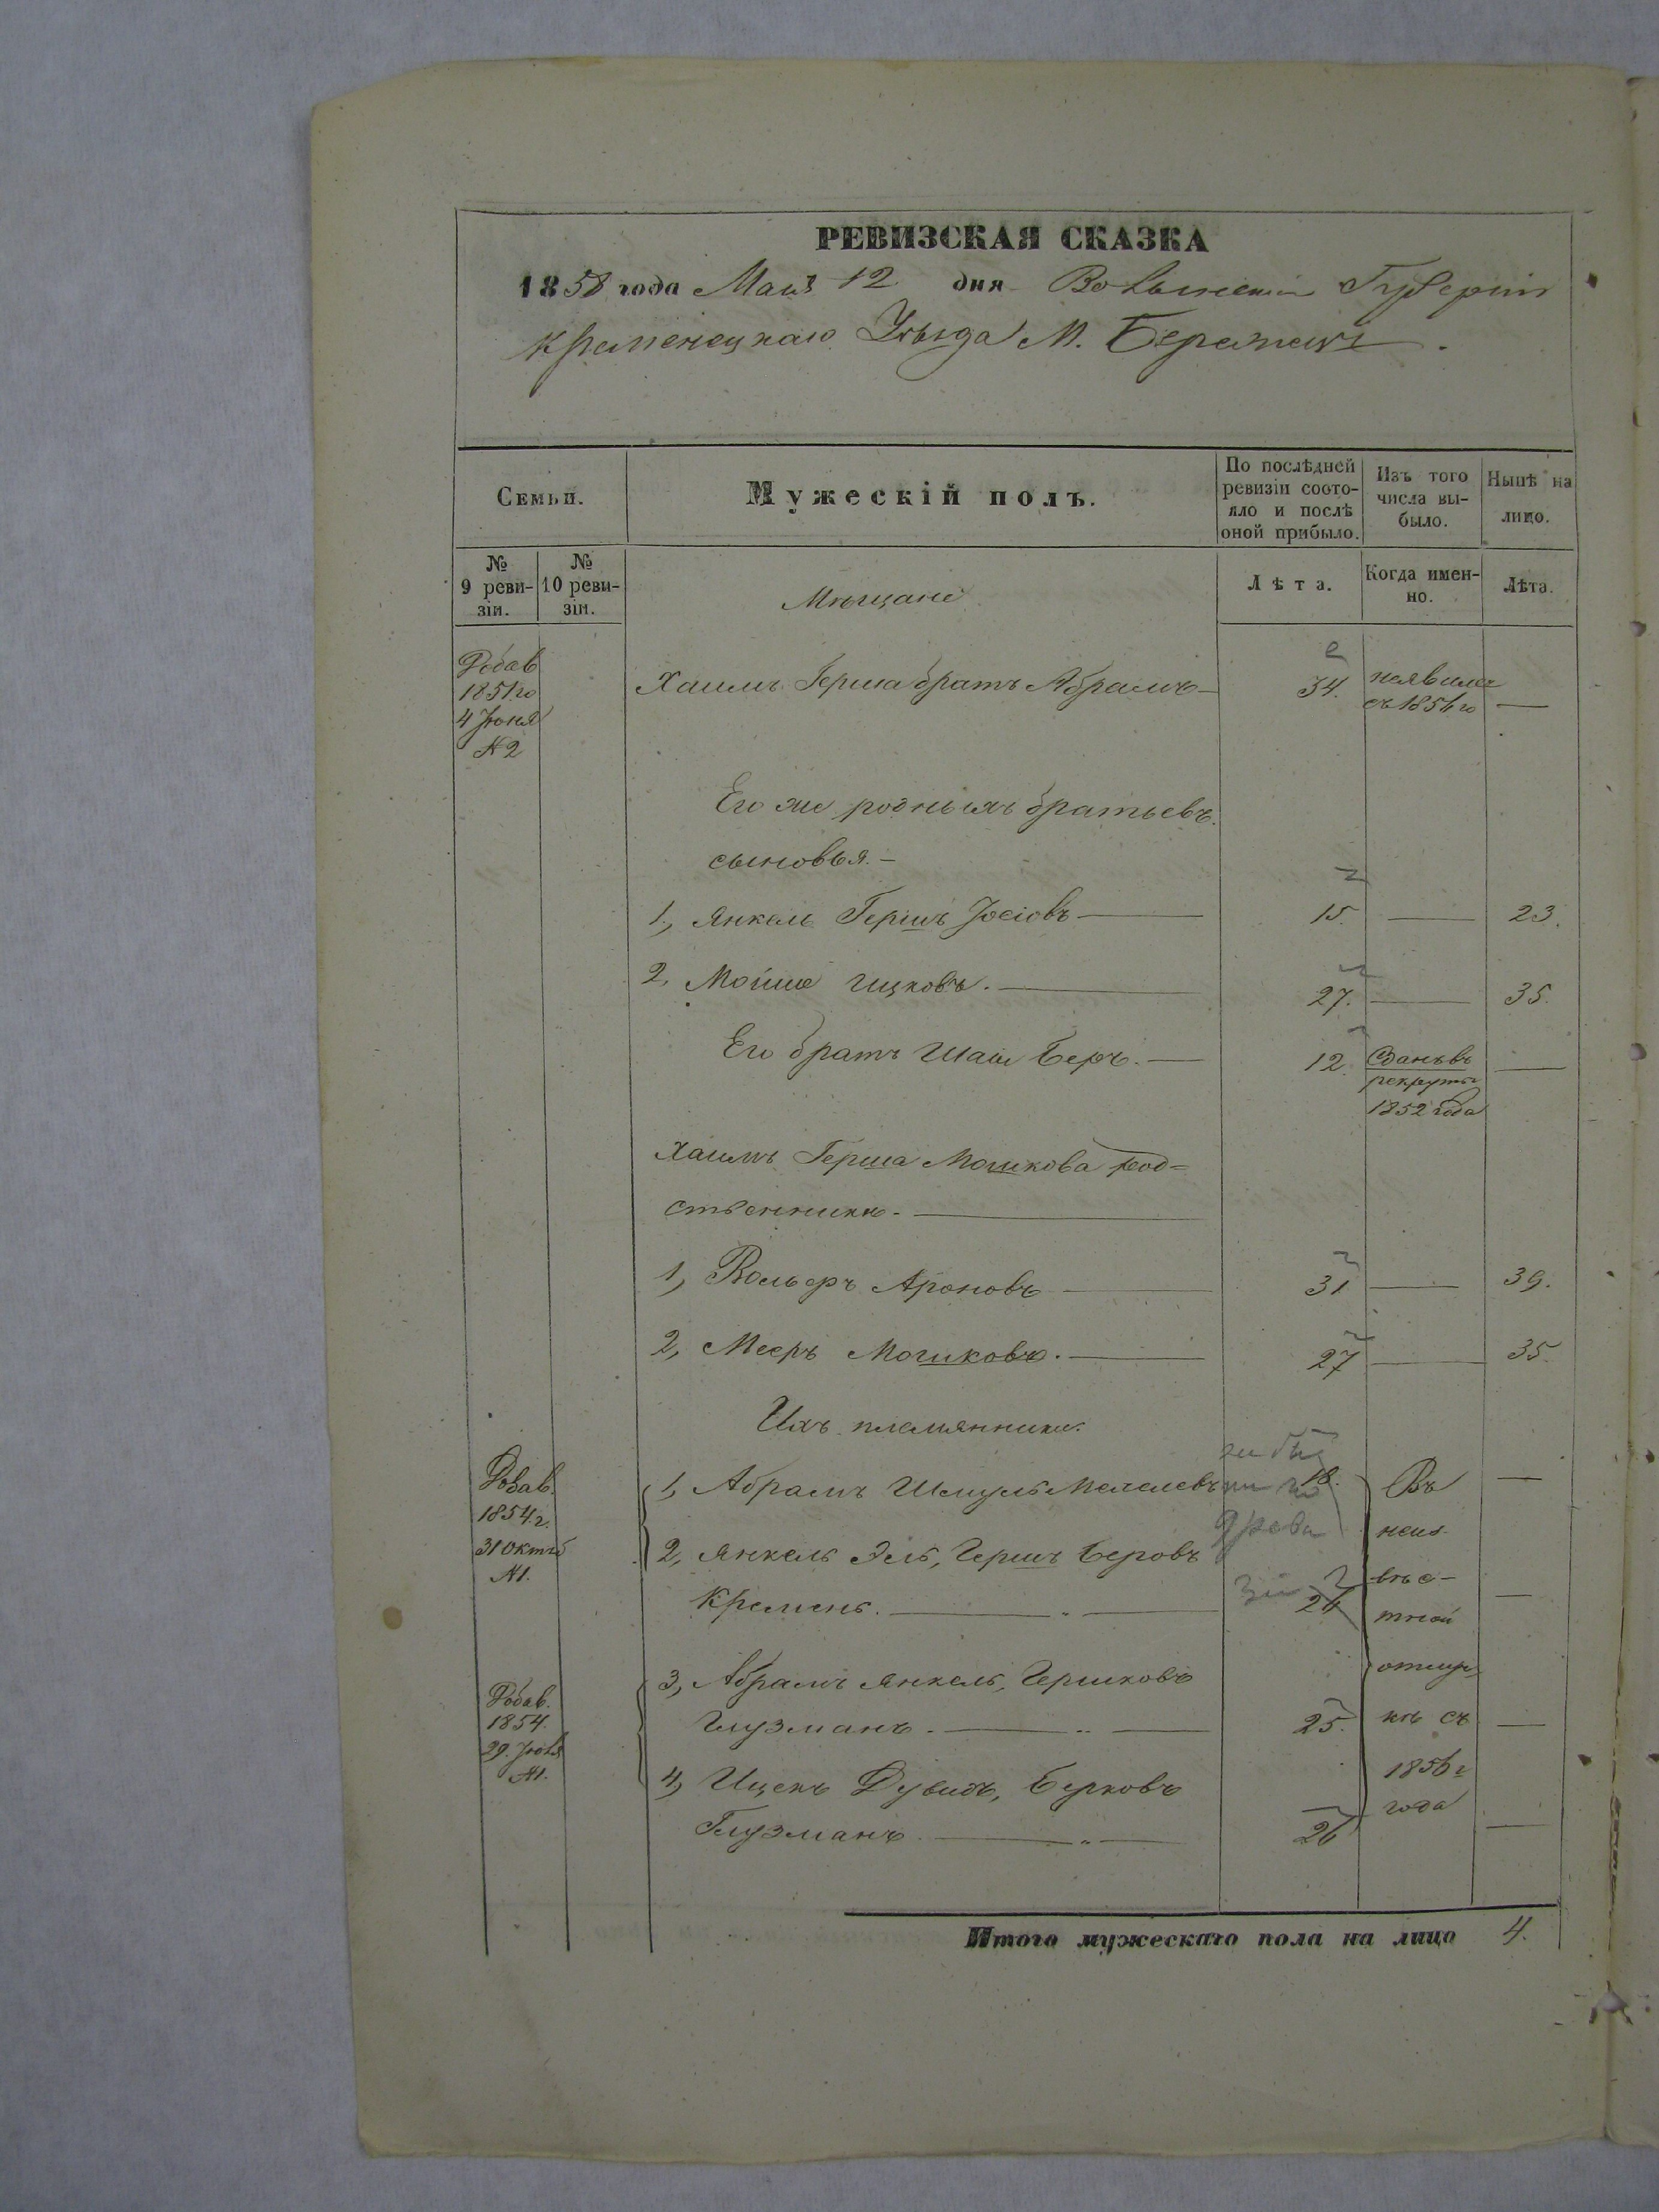 РЕВИЗСКАЯ СКАЗКА
1858 года Мая 12 дня Волынской Губерніи
Кременецкаго Уѣзда М. Бережецъ.
Семьи.
Мужескій полъ.
По послѣдней ревизіи состо-
яло и послѣ
оной прибыло.
Изъ того
числа вы-
было.
Нынѣ на
лицо.
№
9 реви-
зіи.
№
10 реви-
зіи.
Мѣщане
Лѣта.
Когда имен-
но.
Лѣта.
Добав
1851го
4 Іюня
№2
Хаимъ Герша братъ Абрамъ
34.
съ 185
Его же родныхъ братьевъ
сыновья.
1, Янкель Гершъ Іосіовъ
15.
23.
2, Мойше Ицковъ.
27.
35.
Его братъ Шая Беръ.
12.
Сданъ въ
рекруты
1852 года
Хаимъ Герша Мошкова род=
ственники.
1, Вольфъ Ароновъ
31
39.
2, Мееръ Мошковъ.
27
35.
Ихъ племянники.
Добав.
1854.г.
31 Октяб
№1.
1, Абрамъ Шмуль Мечелевъ
18.
2, Янкель Эль, Гершъ Беровъ
Кремень.
26
Добав.
1854.
29. Іюля
№1.
3, Абрамъ Янкель, Гершковъ
Глузманъ.
25.
4, Ицекъ Дувидъ, Берковъ
Глузманъ.
26
Въ
неиз
вѣс-
тной
отлуч
кѣ съ
1856г
года
Итого мужескаго пола на лицо 4.